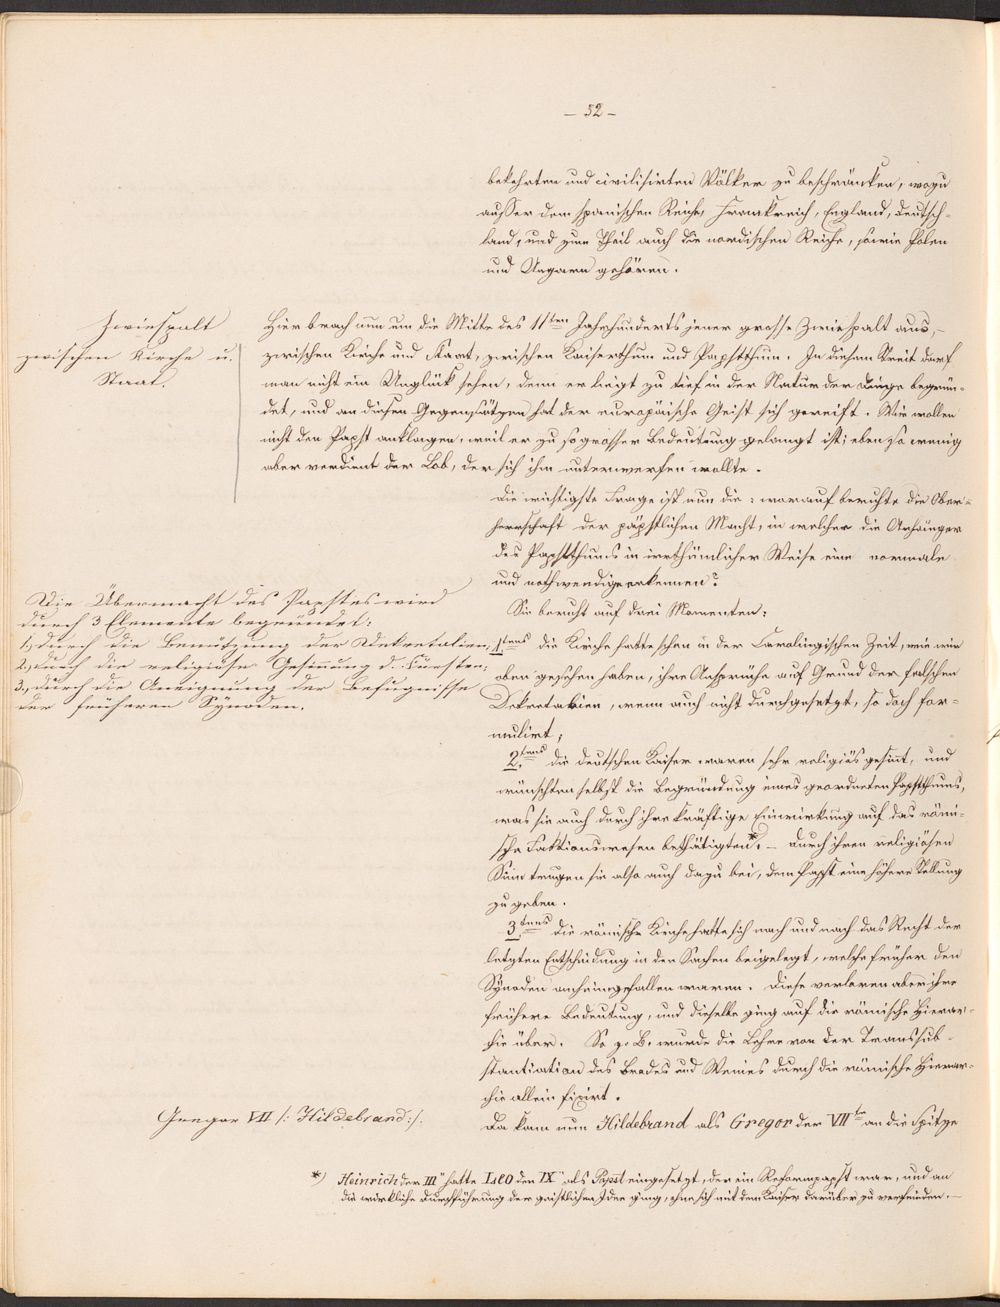 – 52 –
bekehrten und civilisirten Völker zu beschränken, wozu
ausser dem spanischen Reiche, Frankreich, England, Deutsch-
land, und zum Theil auch die nordischen Reiche, sowie Polen
und Ungarn gehören.
Zwiespalt
zwischen Kirche u.
Staat.
Hier brach nun um die Mitte des 11ten Jahrhunderts jener grosse Zwiespalt aus, –
zwischen Kirche und Staat, zwischen Kaiserthum und Papstthum. In diesem Streit darf
man nicht ein Unglück sehen, denn er liegt zu tief in der Natur der Dinge begrün-
det, und an diesen Gegensätzen hat der europäische Geist sich gereift. Wir wollen
nicht den Papst anklagen, weil er zu so grosser Bedeutung gelangt ist; eben so wenig
aber verdient der Lob, der sich ihm unterwerfen wollte.
Die wichtigste Frage ist nun die: worauf beruhte die Ober-
herrschaft der päpstlichen Macht, in welcher die Anhänger
des Papstthums in irrthümlicher Weise eine normale
und nothwendige erkennen?
Sie beruht auf drei Momenten:
Die Übermacht des Papstes wird
durch 3 Elemente begründet:
1., durch die Benützung der Dekretalien;
2., durch die religiöse Gesinnung d. Fürsten;
3., durch die Aneignung der Befugnisse
der früheren Synoden.
1tens die Kirche hatte schon in der Carolingischen Zeit, wie wir
oben gesehen haben, ihre Ansprüche auf Grund der falschen
Dekretalien, wenn auch nicht durchgesetzt, so doch for-
mulirt;
2tens die deutschen Kaiser waren sehr religiös gesinnt, und
wünschten selbst die Begründung eines geordneten Papstthums,
was sie auch durch ihre kräftige Einwirkung auf das römi-
sche Faktionswesen bethätigten*. – Durch ihren religiösen
Sinn trugen sie also auch dazu bei, dem Papst eine höhere Stellung
zu geben.
3tens die römische Kirche hatte sich nach und nach das Recht der
letzten Entscheidung in den Sachen beigelegt, welche früher den
Synoden anheimgefallen waren. Diese verloren aber ihre
frühere Bedeutung, und dieselbe ging auf die römische Hierar-
chie über. So z. B. wurde die Lehre von der Transsub-
stantiation des Brodes und Weines durch die römische Hierar-
chie allein fixirt.
Gregor VII /: Hildebrand :/.
Da kam nun Hildebrand als Gregor der VIIte an die Spitze
*) Heinrich der III hatte Leo den IX als Papst eingesetzt, der ein Reformpapst war, und an
die wirkliche Durchführung der geistlichen Idee ging, ohne sich mit dem Kaiser darüber zu verfeinden. –